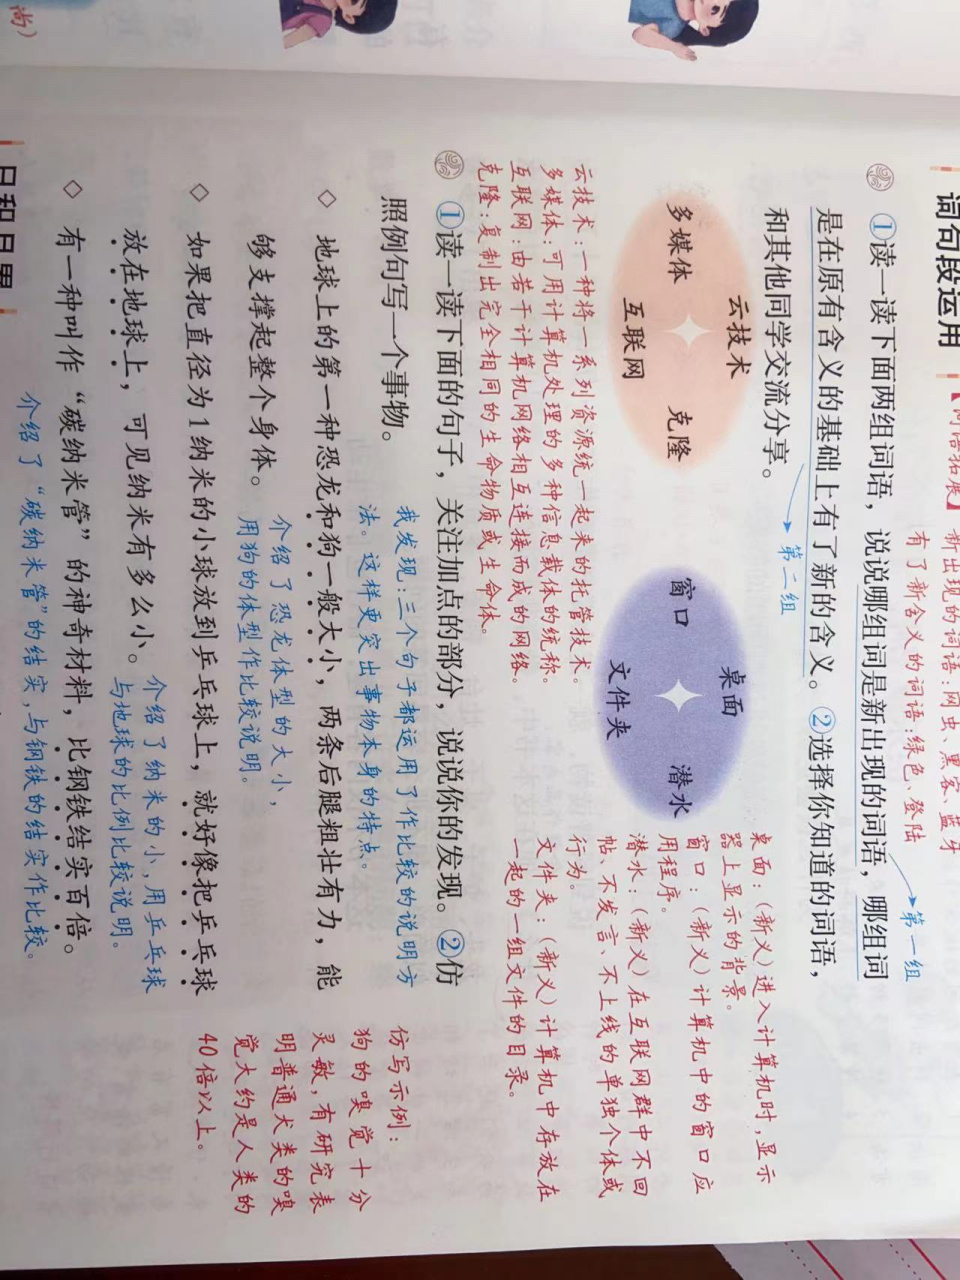 尚）
词句段运用
【词语拓展】新出现的词语：网虫、黑客、蓝牙
有了新含义的词语：绿色、登陆
①读一读下面两组词语，说说哪组词是新出现的词语，哪组词
第一组
是在原有含义的基础上有了新的含义。②选择你知道的词语，
第二组
和其他同学交流分享。
云技术
多媒体
克隆
互联网
桌面
窗口
潜水
文件夹
桌面：（新义）进入计算机时，显示
器上显示的背景。
窗口：（新义）计算机中的窗口应
用程序。
潜水：（新义）在互联网群中不回
帖、不发言、不上线的单独个体或
行为。
文件夹：（新义）计算机中存放在
一起的一组文件的目录。
云技术：一种将一系列资源统一起来的托管技术。
多媒体：可用计算机处理的多种信息载体的统称。
互联网：由若干计算机网络相互连接而成的网络。
克隆：复制出完全相同的生命物质或生命体。
①读一读下面的句子，关注加点的部分，说说你的发现。②仿
照例句写一个事物。
我发现：三个句子都运用了作比较的说明方
法。这样更突出事物本身的特点。
◇ 地球上的第一种恐龙和狗一般大小，两条后腿粗壮有力，能
够支撑起整个身体。
介绍了恐龙体型的大小，
用狗的体型作比较说明。
◇ 如果把直径为1纳米的小球放到乒乓球上，就好像把乒乓球
放在地球上，可见纳米有多么小。
介绍了纳米的小，用乒乓球
与地球的比例比较说明。
◇ 有一种叫作“碳纳米管”的神奇材料，比钢铁结实百倍。
介绍了“碳纳米管”的结实，与钢铁的结实作比较。
仿写示例：
狗的嗅觉十分
灵敏，有研究表
明普通犬类的嗅
觉大约是人类的
40倍以上。
日积月累